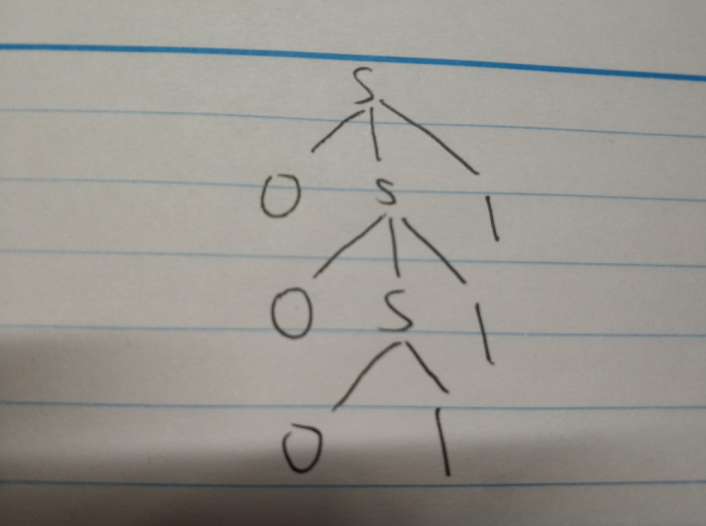 S
0 S 1
0 S 1
0 1